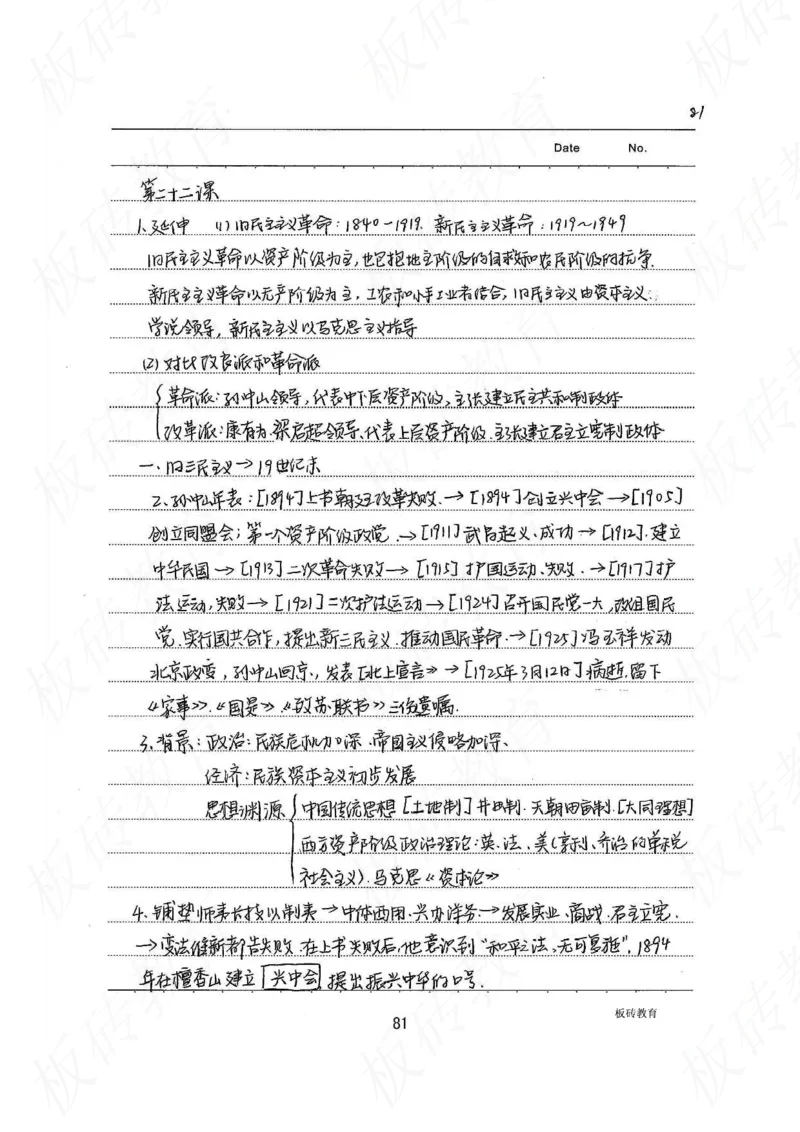 81
Date No.
第二十二课
1.延伸 (1)旧民主主义革命:1840-1919. 新民主主义革命:1919~1949
旧民主主义革命以资产阶级为主,也包括地主阶级的自救和农民阶级的抗争.
新民主主义革命以无产阶级为主,工农和小手工业者结合,旧民主主义由资本主义
学说领导,新民主主义以马克思主义指导
(2)对比改良派和革命派
革命派:孙中山领导,代表中下层资产阶级,主张建立民主共和制政体
改革派:康有为.梁启超领导、代表上层资产阶级.主张建立君主立宪制政体
一、旧三民主义→19世纪末
2、孙中山年表:[1894]上书朝廷改革失败.→[1894]创立兴中会→[1905]
创立同盟会;第一个资产阶级政党.→[1911]武昌起义、成功→[1912].建立
中华民国→[1913]二次革命失败→[1915]护国运动、失败.→[1917]护
法运动,失败→[1921]二次护法运动→[1924]召开国民党一大,改组国民
党、实行国共合作,提出新三民主义.推动国民革命.→[1925]冯玉祥发动
北京政变,孙中山回京,发表《北上宣言》→[1925年3月12日]病逝.留下
《家事》.《国是》《致苏联书》三份遗嘱.
3.背景:政治:民族危机加深.帝国主义侵略加深、
经济:民族资本主义初步发展
思想渊源 中国传统思想[土地制]井田制.天朝田亩制.[大同理想]
西方资产阶级政治理论:英、法、美(亨利、乔治的单税
社会主义).马克思《资本论》
4.铺垫师夷长技以制夷→中体西用.兴办洋务→发展实业.商战.君主立宪.
→变法维新都告失败.在上书失败后,他意识到"和平之法,无可复施".1894
年在檀香山建立 兴中会 提出振兴中华的口号.
板砖教育
81